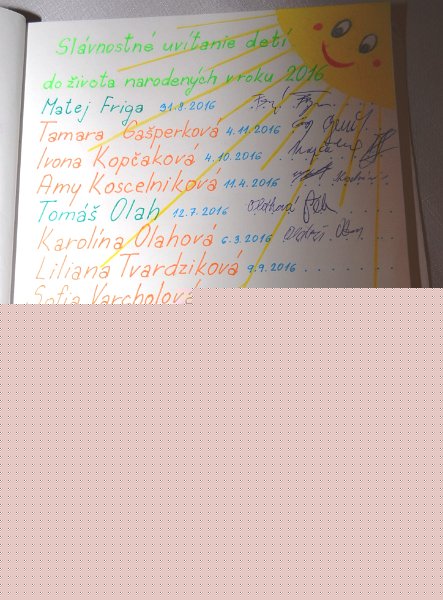 Slávnostné uvítanie detí
do života narodených v roku 2016
Matej Friga 31.8.2016
Tamara Gašperková 4.11.2016
Ivona Kopčaková 4.10.2016
Amy Koscelniková 11.4.2016
Tomáš Olah 12.7.2016 Olahová
Karolína Olahová 6.3.2016
Liliana Tvardziková 9.9.2016
Sofia Varcholová